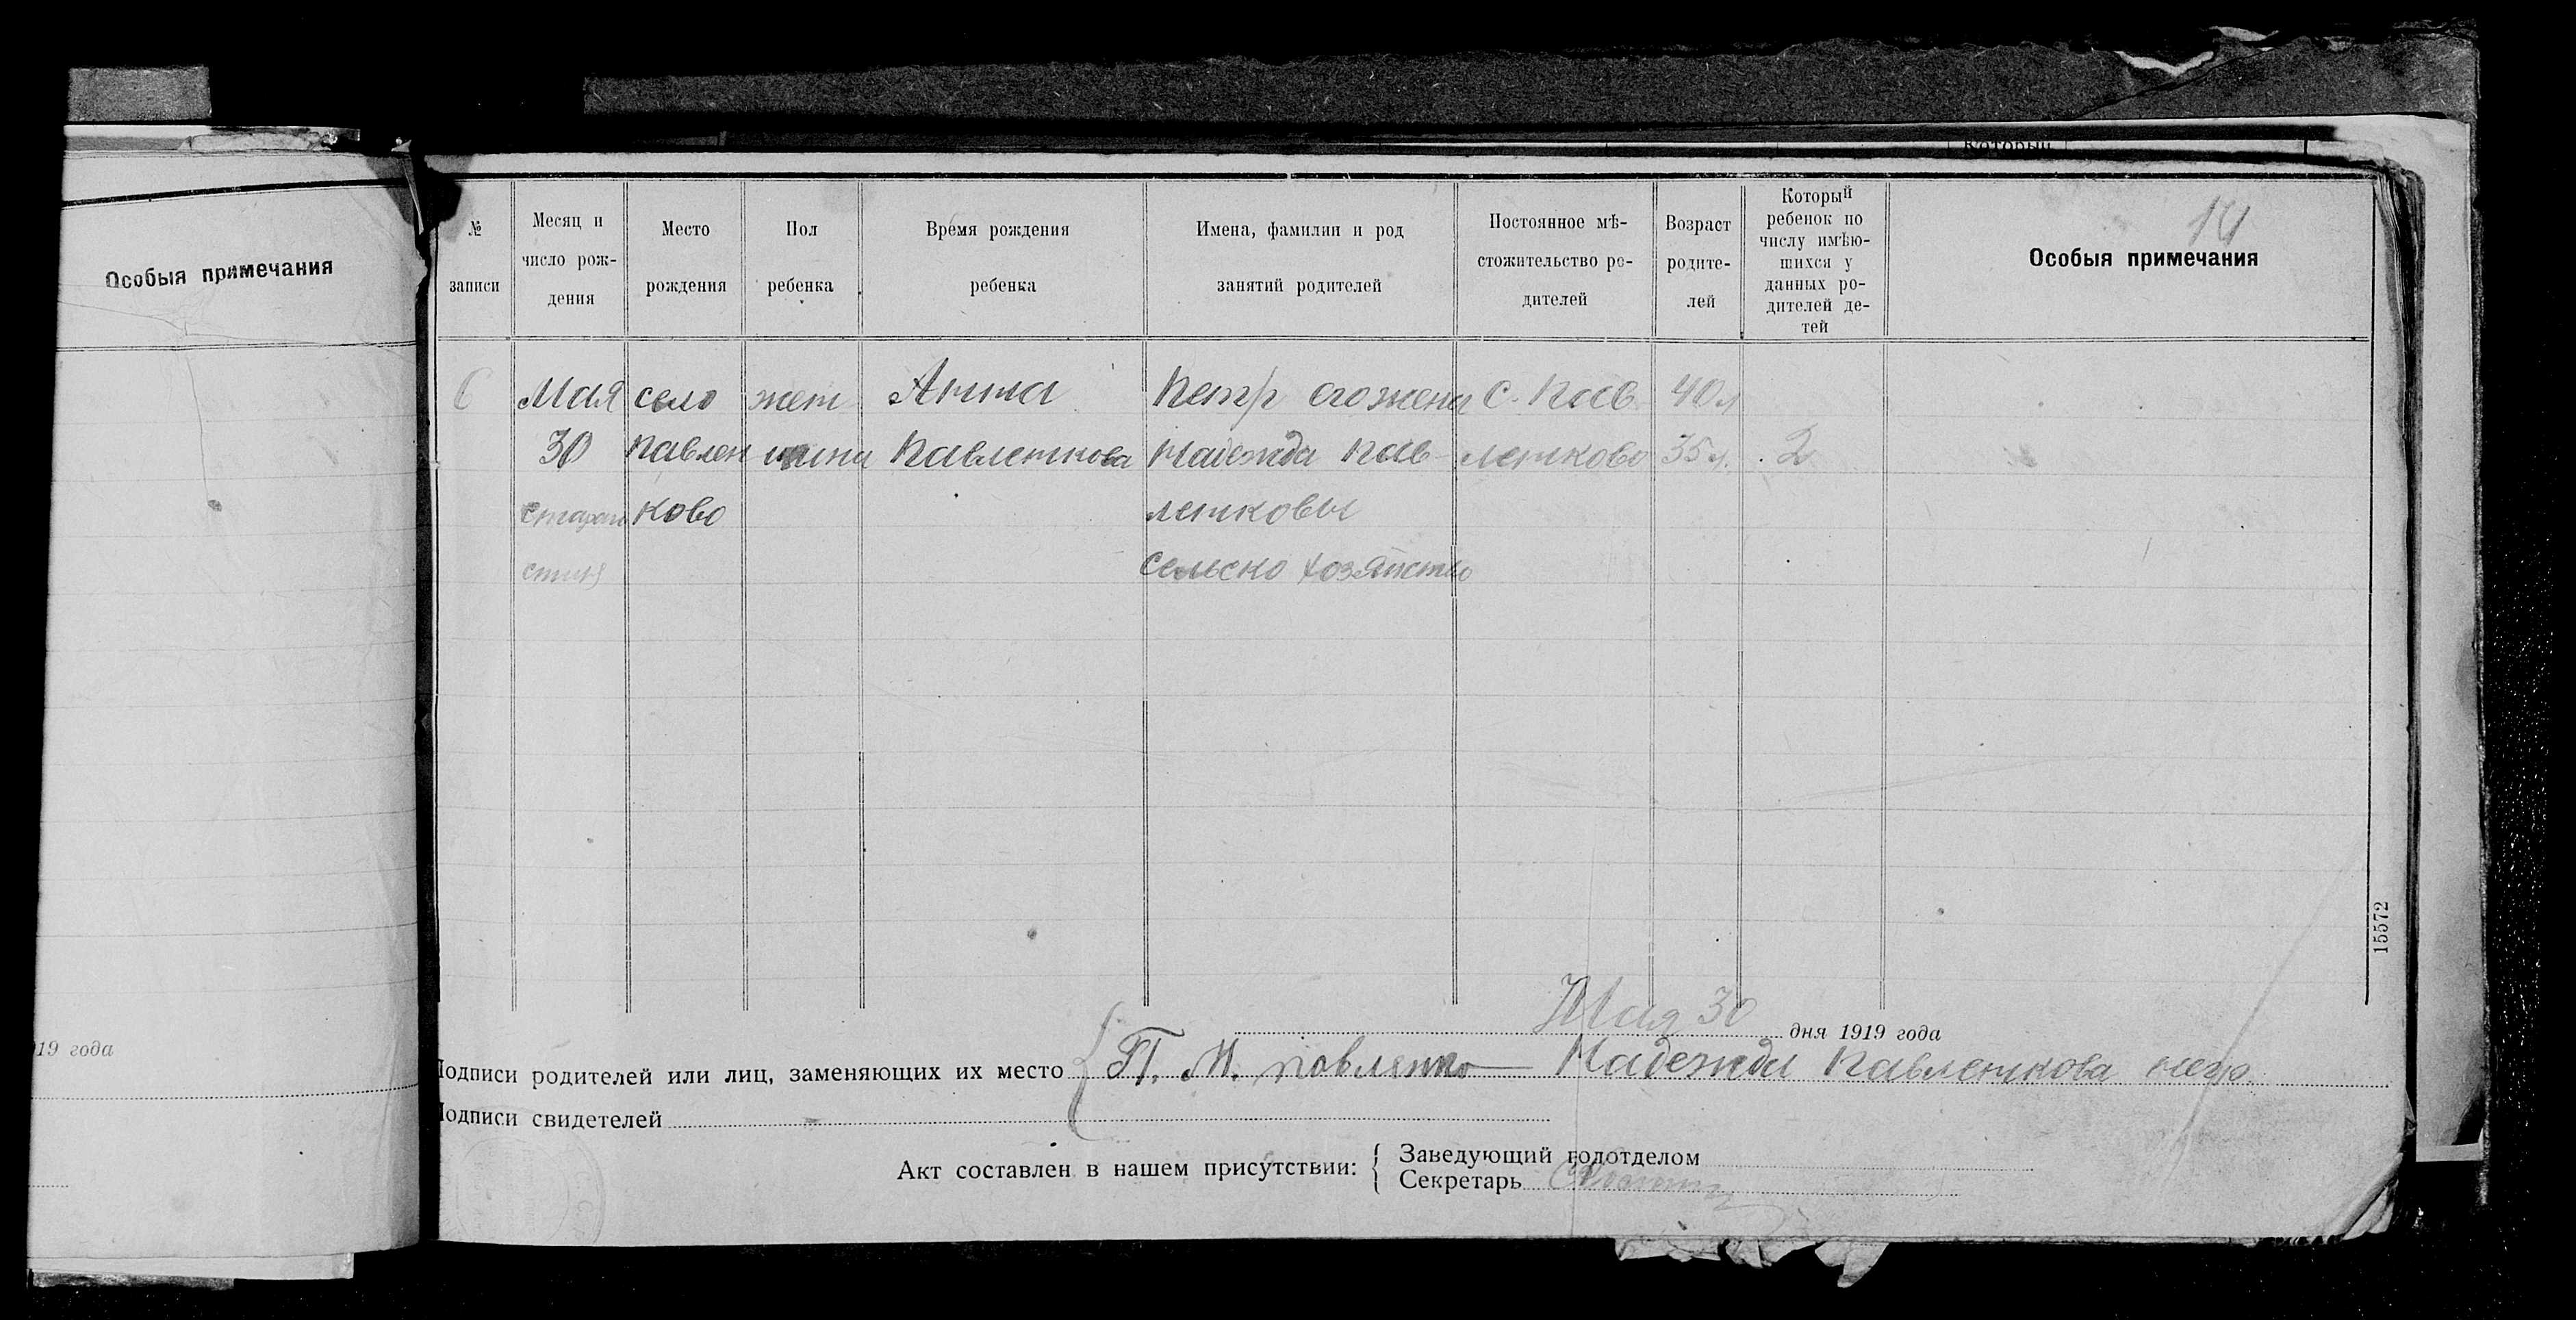 Который
Особыя примечания
19 года
14
№ записи
Месяц и число рож-дения
Место рождения
Пол ребенка
Время рождения ребенка
Имена, фамилии и род занятий родителей
Постоянное мѣ-стожительство ро-дителей
Возраст родите-лей
Который ребенок по числу имѣю-шихся у данных ро-дителей де-тей
Особыя примечания
6 Мая село жен Анна Петр его жена С. Пав 40 л
30 Павлен щина Павленкова Надежда Пав ленково 35 л. 2
ково ленковы
сельско хозяйство
15572
Мая 30 дня 1919 года
Подписи родителей или лиц, заменяющих их место П. М. Надежда Павленкова негр.
Подписи свидетелей
Акт составлен в нашем присутствии: Заведующий подотделом
Секретарь